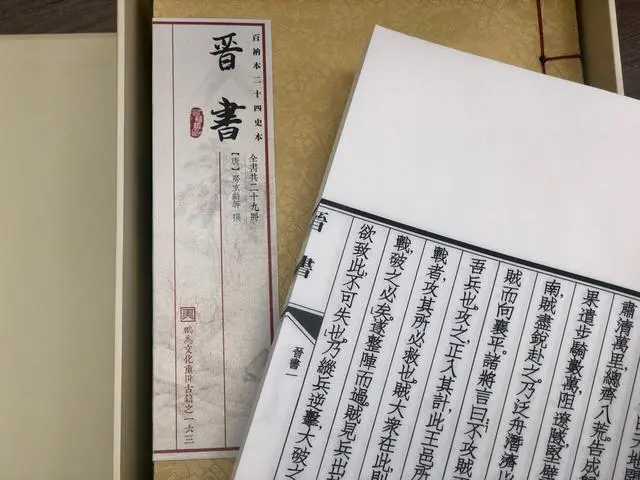 百衲本二十四史本
晋書
全書共二十九冊
【唐】房玄齡等 撰
文化重排古籍之一六三
蕭清萬里,總齊八荒。告成
果遣步騎數萬,阻遼隧,堅壁
南,賊盡銳赴之。乃泛舟潛濟以
賊而向襄平。諸將言曰:不攻賊
吾兵也。攻之,正入其計,此王邑所
戰者,攻其所必救也。賊大衆在此,則
戰,破之必矣。遂整陣而過。賊見兵出
欲致此,不可失也。乃縱兵逆擊,大破之
晉書
晉書一